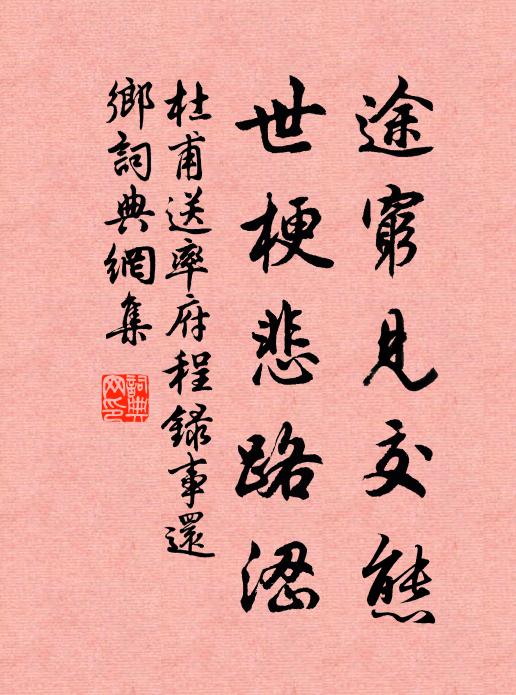 途窮見交態
世梗悲路澀
杜甫送率府程録事還
鄉詞典網集
詞典
网印